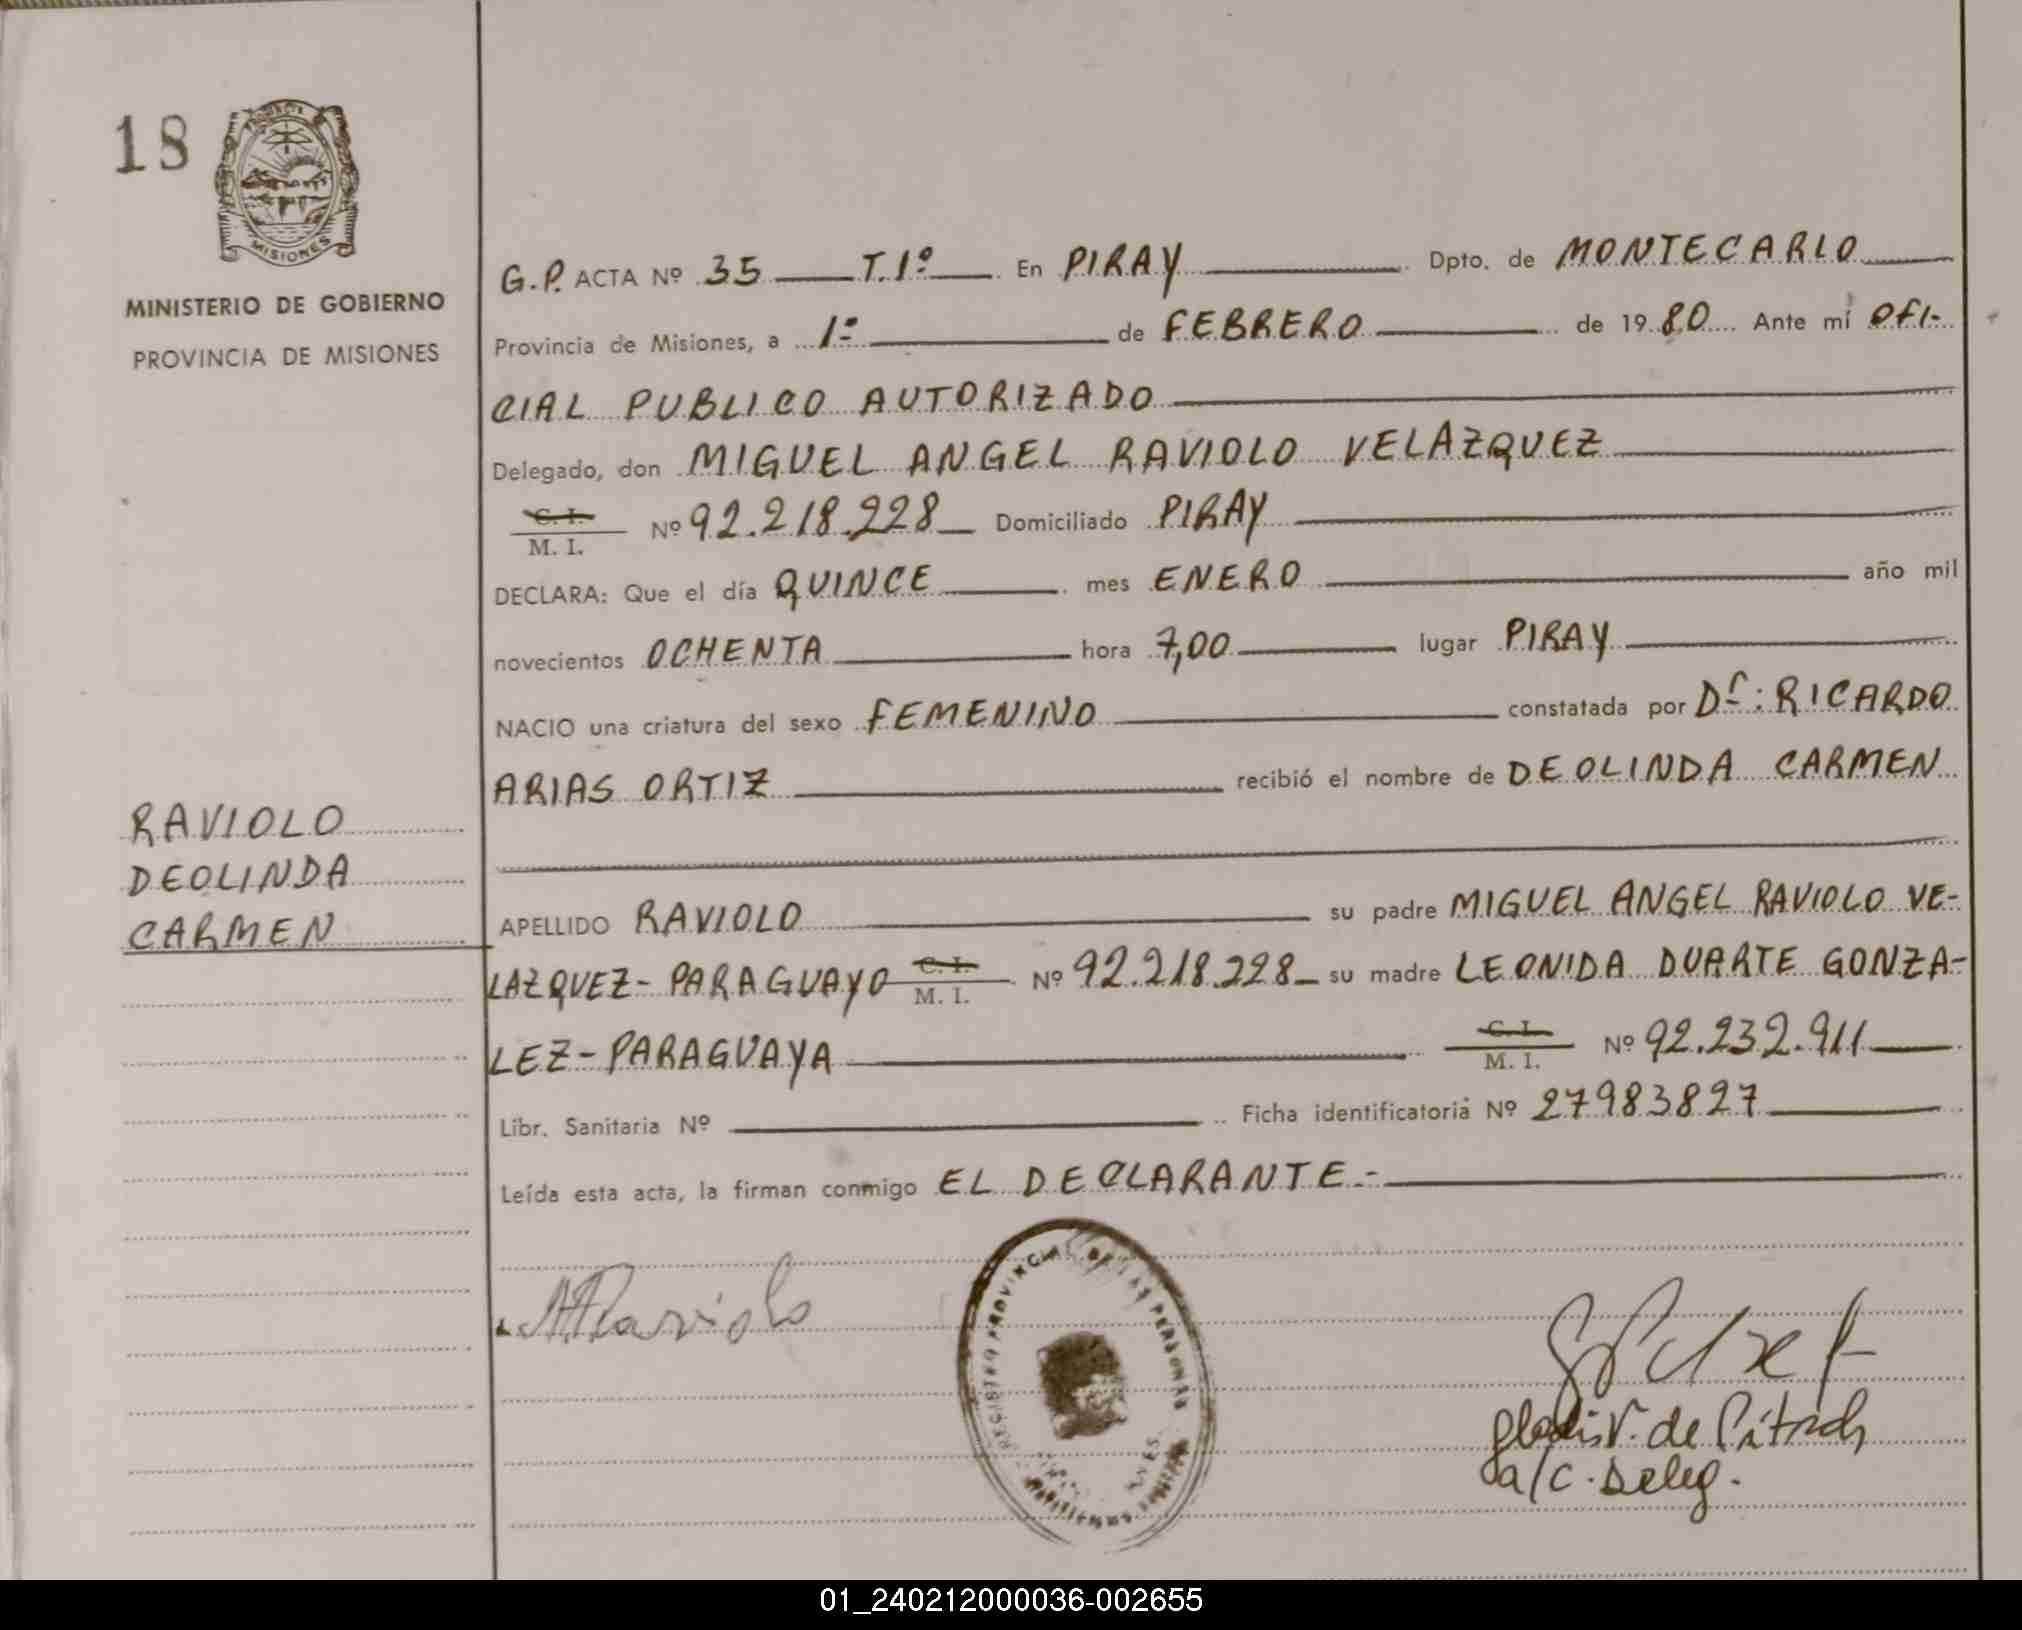 18
MISIONES
MINISTERIO DE GOBIERNO
PROVINCIA DE MISIONES
RAVIOLO
DEOLINDA
CARMEN
G.P. ACTA Nº 35 T.1º En PIRAY Dpto. de MONTECARLO
Provincia de Misiones, a 1º de FEBRERO de 1980 Ante mí OFI-
CIAL PUBLICO AUTORIZADO
Delegado, don MIGUEL ANGEL RAVIOLO VELAZQUEZ
C. I.
M. I. Nº 92.218.228 Domiciliado PIRAY
DECLARA: Que el día QUINCE mes ENERO año mil
novecientos OCHENTA hora 7,00 lugar PIRAY
NACIO una criatura del sexo FEMENINO constatada por Dr: RICARDO
ARIAS ORTIZ recibió el nombre de DEOLINDA CARMEN
APELLIDO RAVIOLO su padre MIGUEL ANGEL RAVIOLO VE-
LAZQUEZ- PARAGUAYO C. I. M. I. Nº 92.218.228 su madre LEONIDA DUARTE GONZA-
LEZ- PARAGUAYA C. I. M. I. Nº 92.232.911
Libr. Sanitaria Nº Ficha identificatoria Nº 27983827
Leída esta acta, la firman conmigo EL DECLARANTE.-
Raviolo
REGISTRO PROVINCIAL DE LAS PERSONAS
MISIONES
V. de
a/c. Deleg.
01_240212000036-002655